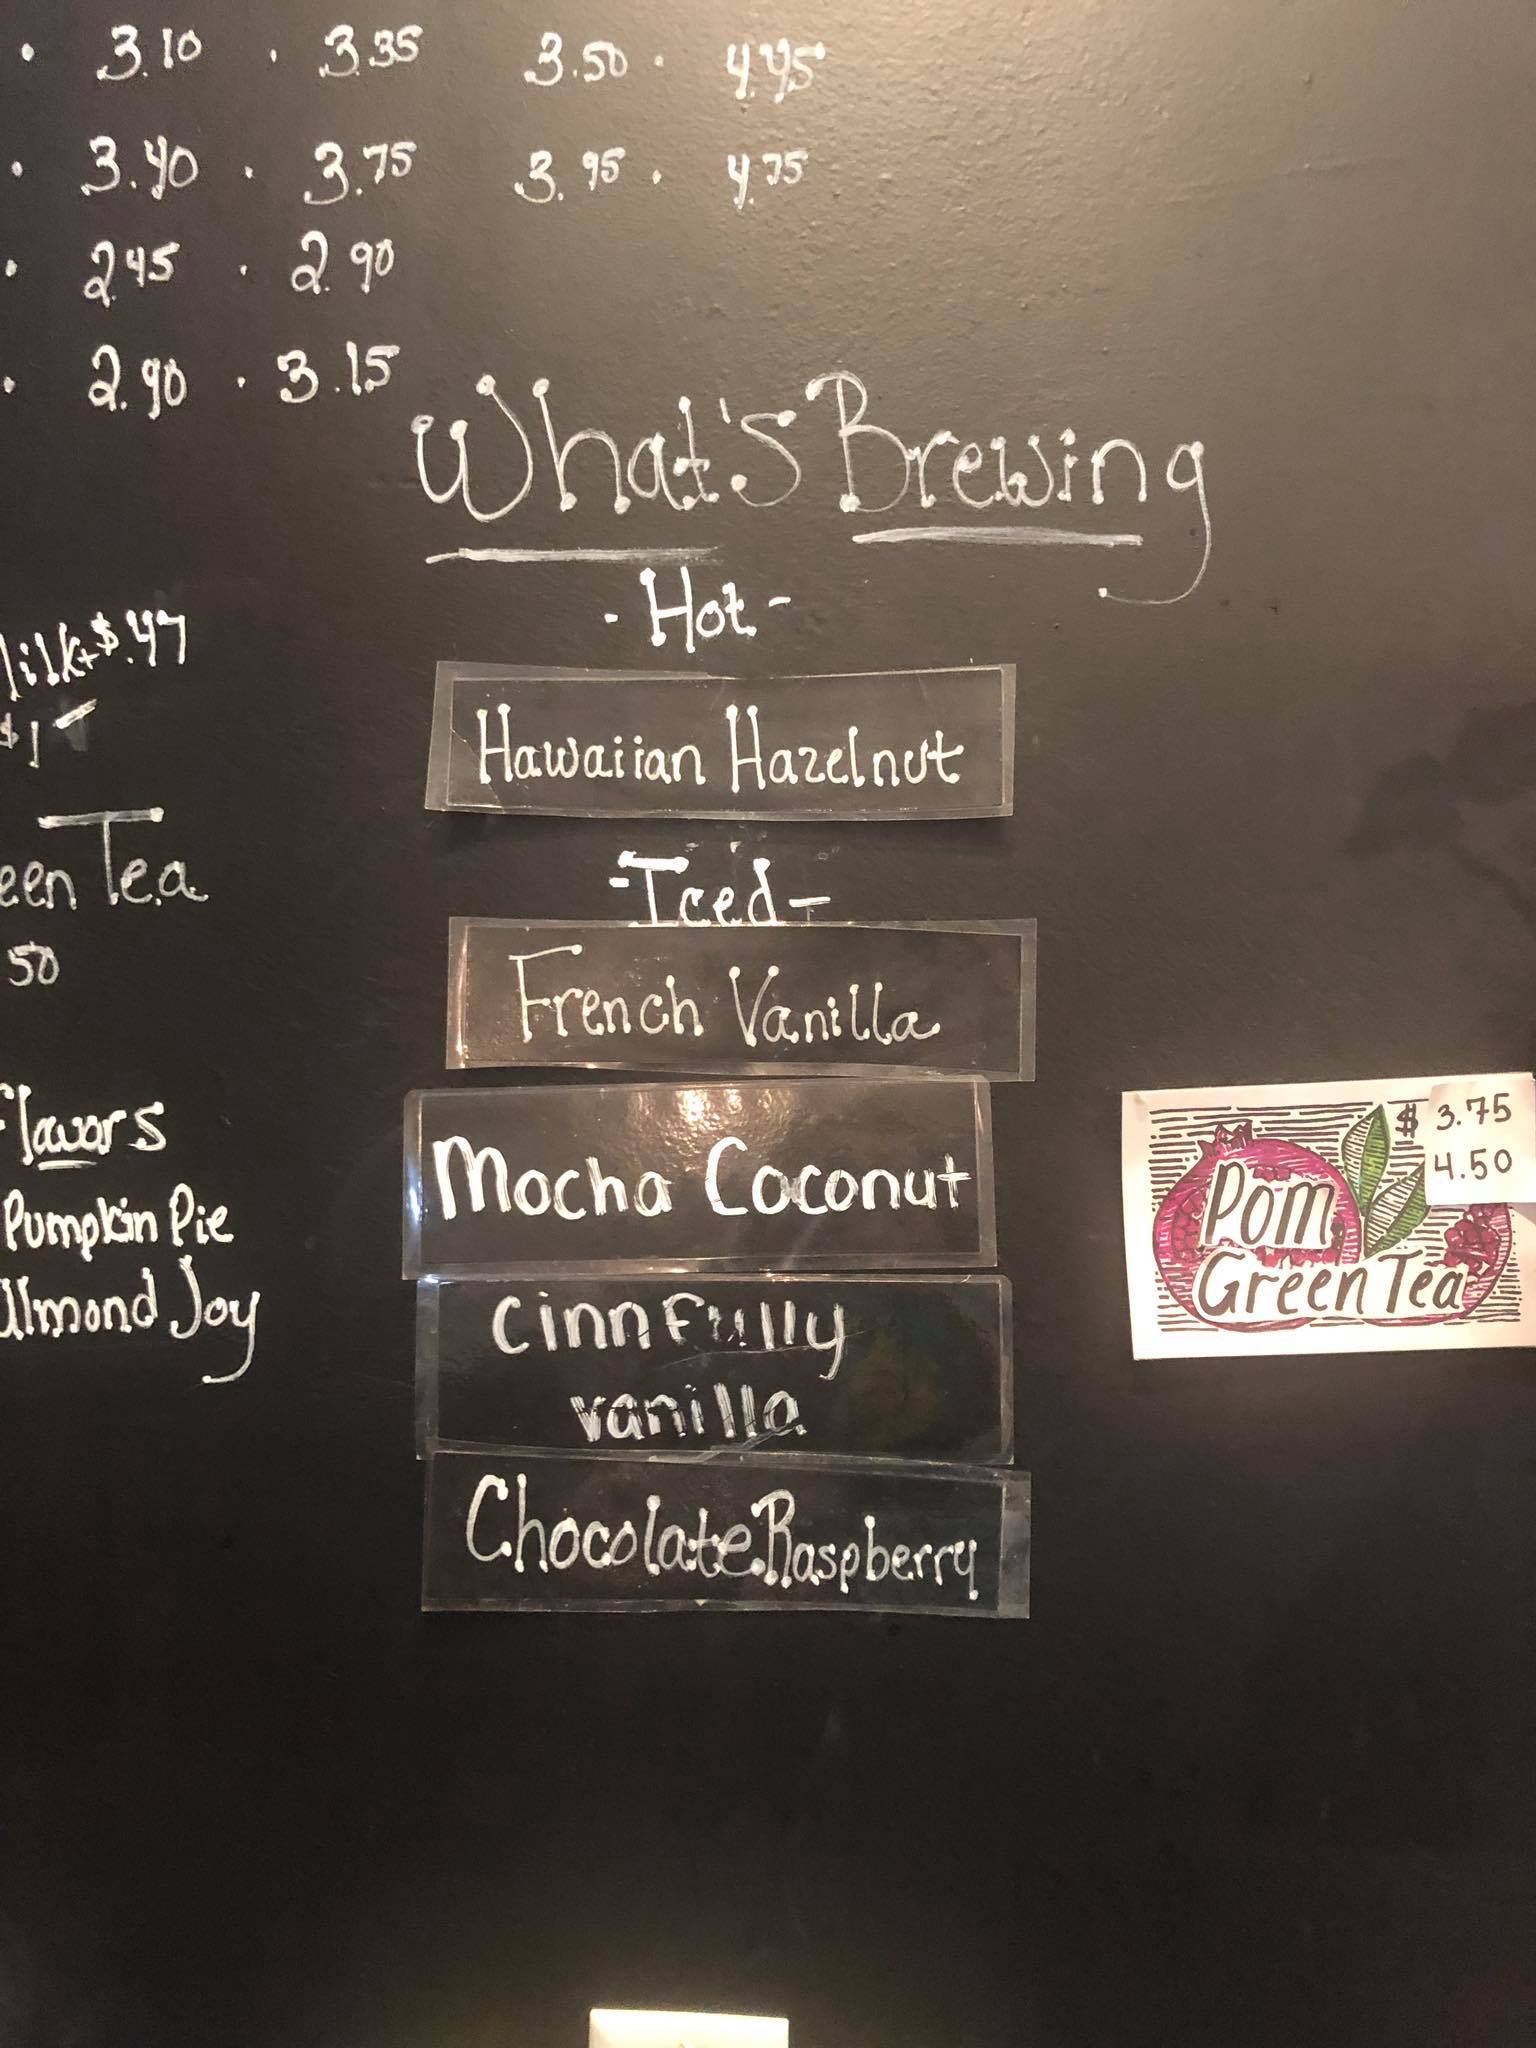 3.10 · 3.35 3.50 · 4.45
3.40 · 3.75 3.95 · 4.75
2.45 · 2.90
2.90 · 3.15
What's Brewing
- Hot -
Hawaiian Hazelnut
- Iced -
French Vanilla
Mocha Coconut
Cinnfully
vanilla
Chocolate Raspberry
+ $.47
$1
Tea
50
Flavors
Pumpkin Pie
Almond Joy
$ 3.75
4.50
Pom
Green Tea